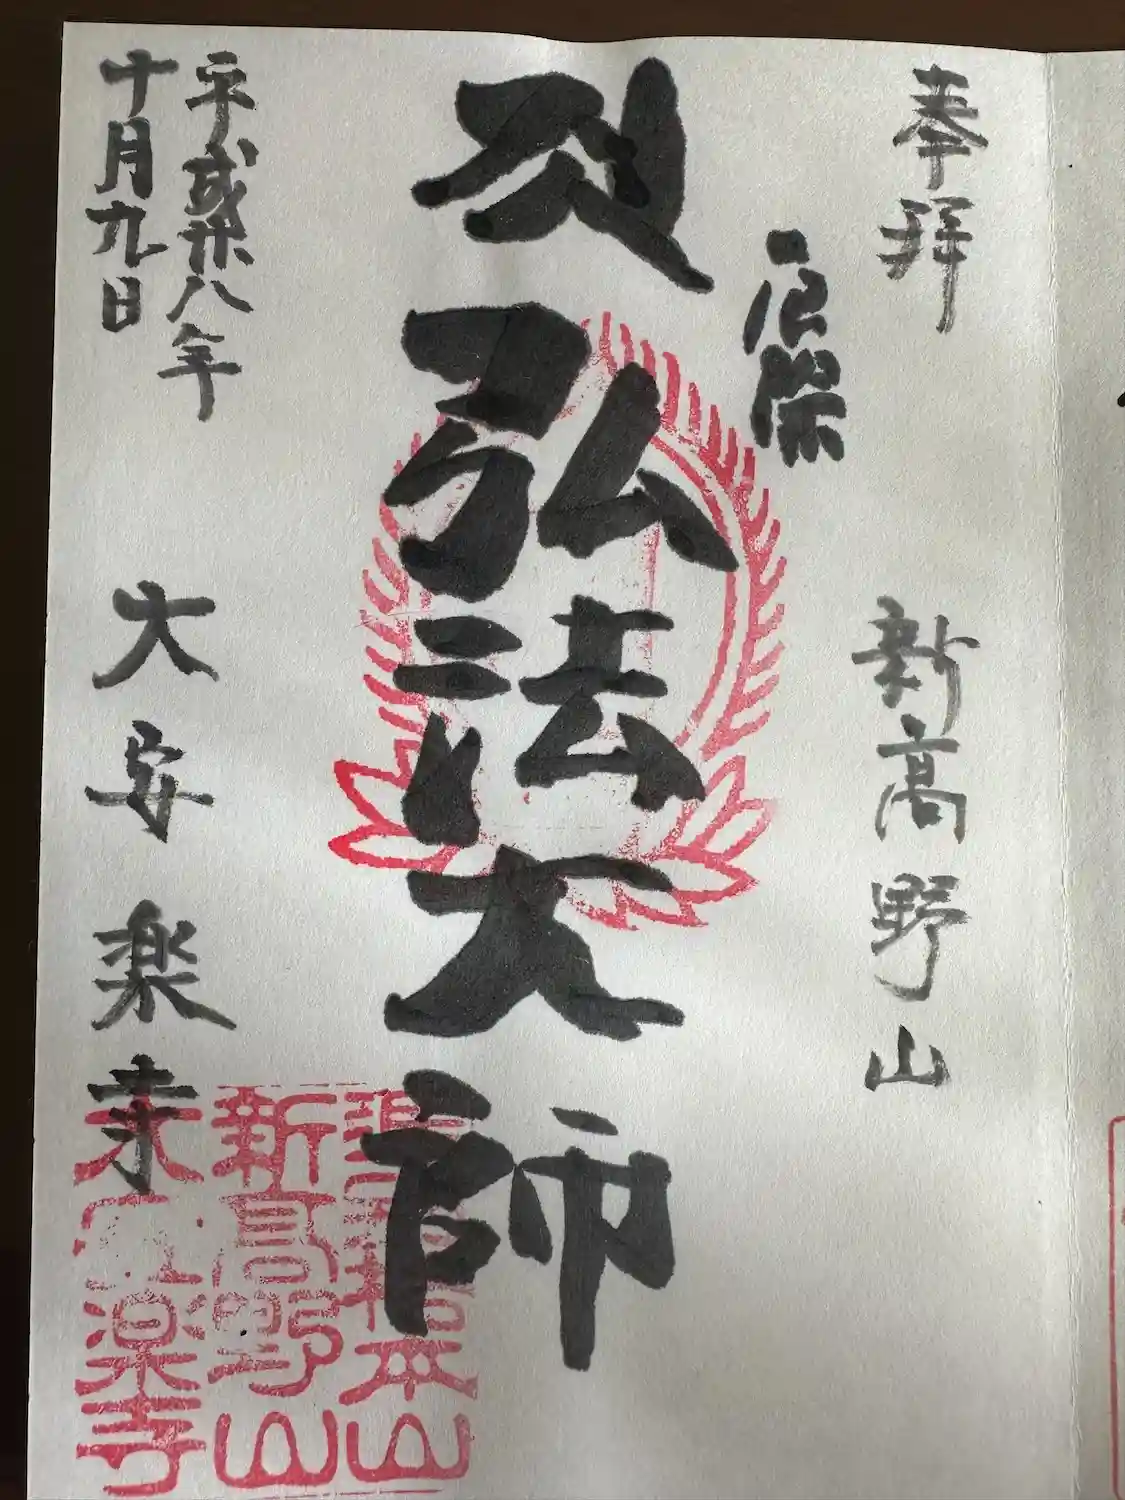 奉拝
新高野山
弘法大師
平成廿八年
十月九日
大安楽寺
本山
新高野山
大安楽寺